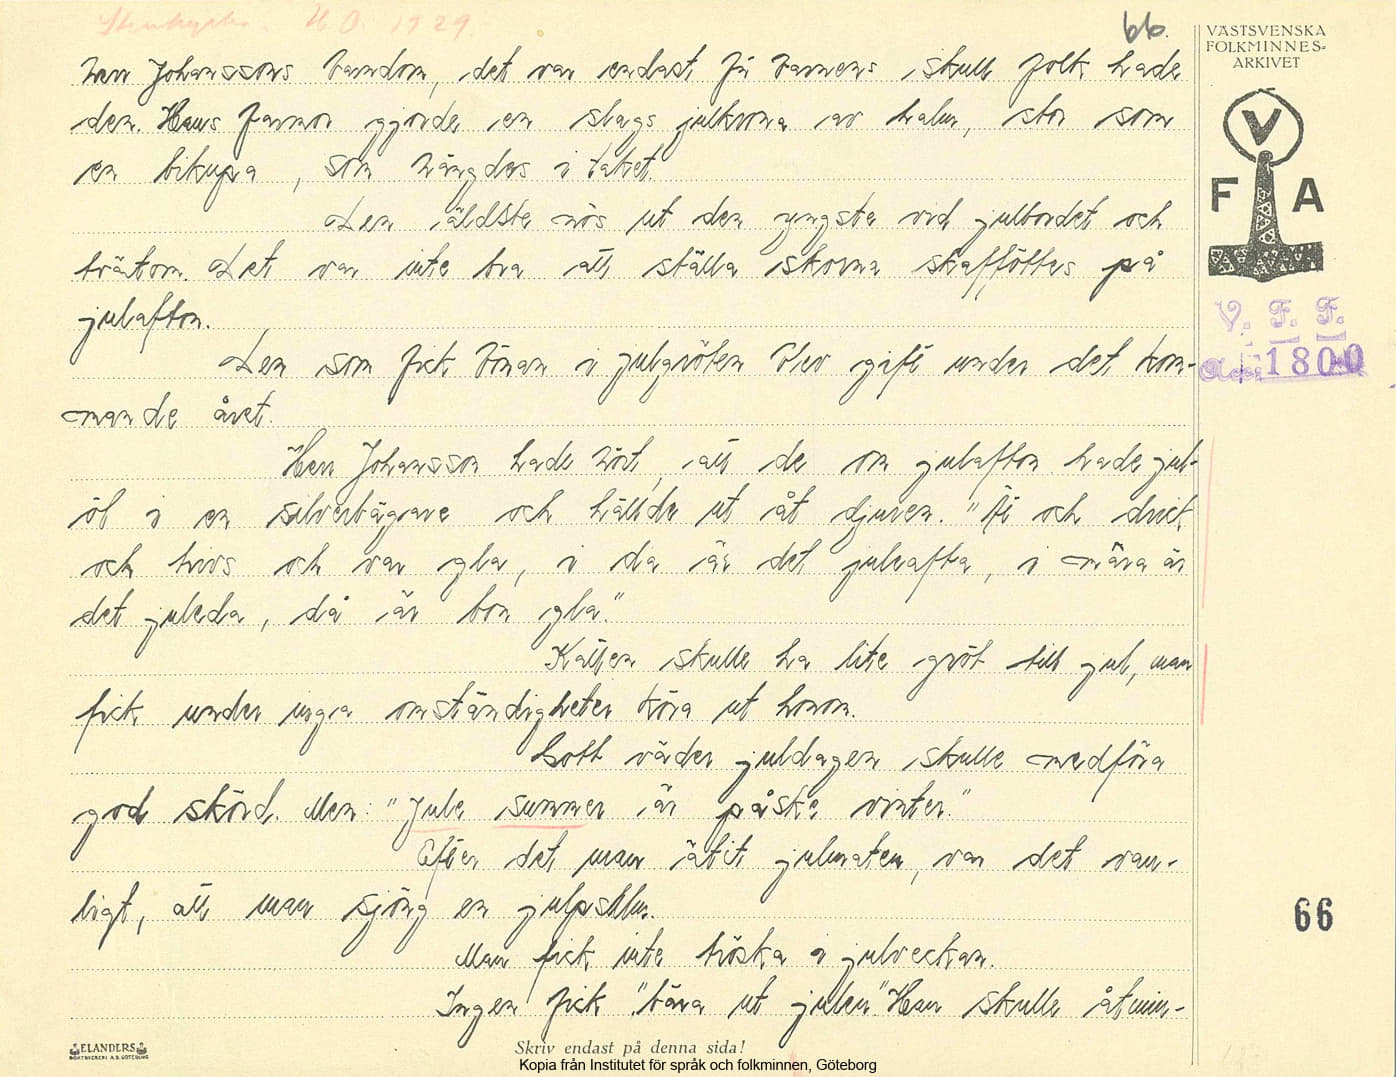 Stenkyrka. H.O. 1929.
66.
VÄSTSVENSKA
FOLKMINNES-
ARKIVET
V
F A
V. F. F.
Acc. 1800
herr Johanssons barndom, det var endast för barnens skull folk hade
den. Hans farmor gjorde en slags julkrona av halm, stor som
en bikupa, som hängdes i taket.
Den äldste nös ut den yngste vid julbordet och
tvärtom. Det var inte bra att ställa skorna skafföttes på
julafton.
Den som fick bönan i julgröten blev gift under det kom-
mande året.
Herr Johansson hade hört, att de om julafton hade jul-
öl i en silverbägare och hällde ut åt djuren. "Ät och drick
och trivs och var gla, i da är det juleafta, i måra är
det juleda, då är bon gla."
Katten skulle ha lite gröt till jul, man
fick under inga omständigheter köra ut honom.
Gott väder juldagen skulle medföra
god skörd. Men: "Jule summer är påske vinter."
Efter det man ätit julmaten, var det van-
ligt, att man sjöng en julpsalm.
Man fick inte tröska i julveckan.
Ingen fick "bära ut julen" Han skulle åtmin-
66
ELANDERS
BOKTRYCKERI A.B. GÖTEBORG
Skriv endast på denna sida!
Kopia från Institutet för språk och folkminnen, Göteborg